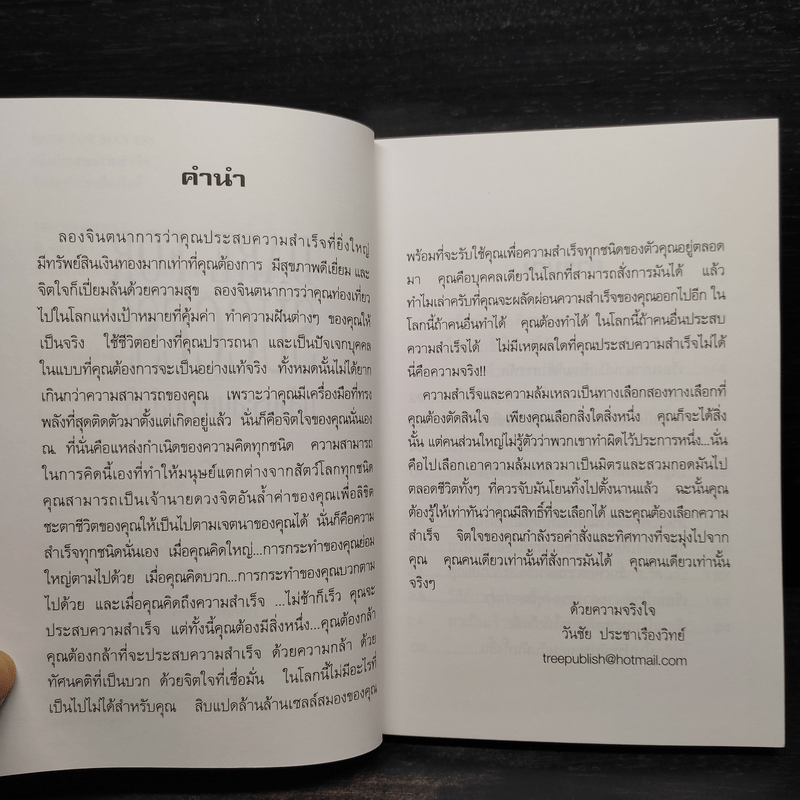 คำนำ
ลองจินตนาการว่าคุณประสบความสำเร็จที่ยิ่งใหญ่
มีทรัพย์สินเงินทองมากเท่าที่คุณต้องการ มีสุขภาพดีเยี่ยม และ
จิตใจก็เปี่ยมล้นด้วยความสุข ลองจินตนาการว่าคุณท่องเที่ยว
ไปในโลกแห่งเป้าหมายที่คุ้มค่า ทำความฝันต่างๆ ของคุณให้
เป็นจริง ใช้ชีวิตอย่างที่คุณปรารถนา และเป็นปัจเจกบุคคล
ในแบบที่คุณต้องการจะเป็นอย่างแท้จริง ทั้งหมดนั้นไม่ได้ยาก
เกินกว่าความสามารถของคุณ เพราะว่าคุณมีเครื่องมือที่ทรง
พลังที่สุดติดตัวมาตั้งแต่เกิดอยู่แล้ว นั่นก็คือจิตใจของคุณนั่นเอง
ณ ที่นั่นคือแหล่งกำเนิดของความคิดทุกชนิด ความสามารถ
ในการคิดนี้เองที่ทำให้มนุษย์แตกต่างจากสัตว์โลกทุกชนิด
คุณสามารถเป็นเจ้านายดวงจิตอันล้ำค่าของคุณเพื่อลิขิต
ชะตาชีวิตของคุณให้เป็นไปตามเจตนาของคุณได้ นั่นก็คือความ
สำเร็จทุกชนิดนั่นเอง เมื่อคุณคิดใหญ่...การกระทำของคุณย่อม
ใหญ่ตามไปด้วย เมื่อคุณคิดบวก...การกระทำของคุณบวกตาม
ไปด้วย และเมื่อคุณคิดถึงความสำเร็จ ...ไม่ช้าก็เร็ว คุณจะ
ประสบความสำเร็จ แต่ทั้งนี้คุณต้องมีสิ่งหนึ่ง...คุณต้องกล้า
คุณต้องกล้าที่จะประสบความสำเร็จ ด้วยความกล้า ด้วย
ทัศนคติที่เป็นบวก ด้วยจิตใจที่เชื่อมั่น ในโลกนี้ไม่มีอะไรที่
เป็นไปไม่ได้สำหรับคุณ สิบแปดล้านล้านเซลล์สมองของคุณ
พร้อมที่จะรับใช้คุณเพื่อความสำเร็จทุกชนิดของตัวคุณอยู่ตลอด
มา คุณคือบุคคลเดียวในโลกที่สามารถสั่งการมันได้ แล้ว
ทำไมเล่าครับที่คุณจะผลัดผ่อนความสำเร็จของคุณออกไปอีก ใน
โลกนี้ถ้าคนอื่นทำได้ คุณต้องทำได้ ในโลกนี้ถ้าคนอื่นประสบ
ความสำเร็จได้ ไม่มีเหตุผลใดที่คุณประสบความสำเร็จไม่ได้
นี่คือความจริง!!
ความสำเร็จและความล้มเหลวเป็นทางเลือกสองทางเลือกที่
คุณต้องตัดสินใจ เพียงคุณเลือกสิ่งใดสิ่งหนึ่ง คุณก็จะได้สิ่ง
นั้น แต่คนส่วนใหญ่ไม่รู้ตัวว่าพวกเขาทำผิดไว้ประการหนึ่ง...นั่น
คือไปเลือกเอาความล้มเหลวมาเป็นมิตรและสวมกอดมันไป
ตลอดชีวิตทั้งๆ ที่ควรจับมันโยนทิ้งไปตั้งนานแล้ว ฉะนั้นคุณ
ต้องรู้ให้เท่าทันว่าคุณมีสิทธิ์ที่จะเลือกได้ และคุณต้องเลือกความ
สำเร็จ จิตใจของคุณกำลังรอคำสั่งและทิศทางที่จะมุ่งไปจาก
คุณ คุณคนเดียวเท่านั้นที่สั่งการมันได้ คุณคนเดียวเท่านั้น
จริงๆ
ด้วยความจริงใจ
วันชัย ประชาเรืองวิทย์
treepublish@hotmail.com